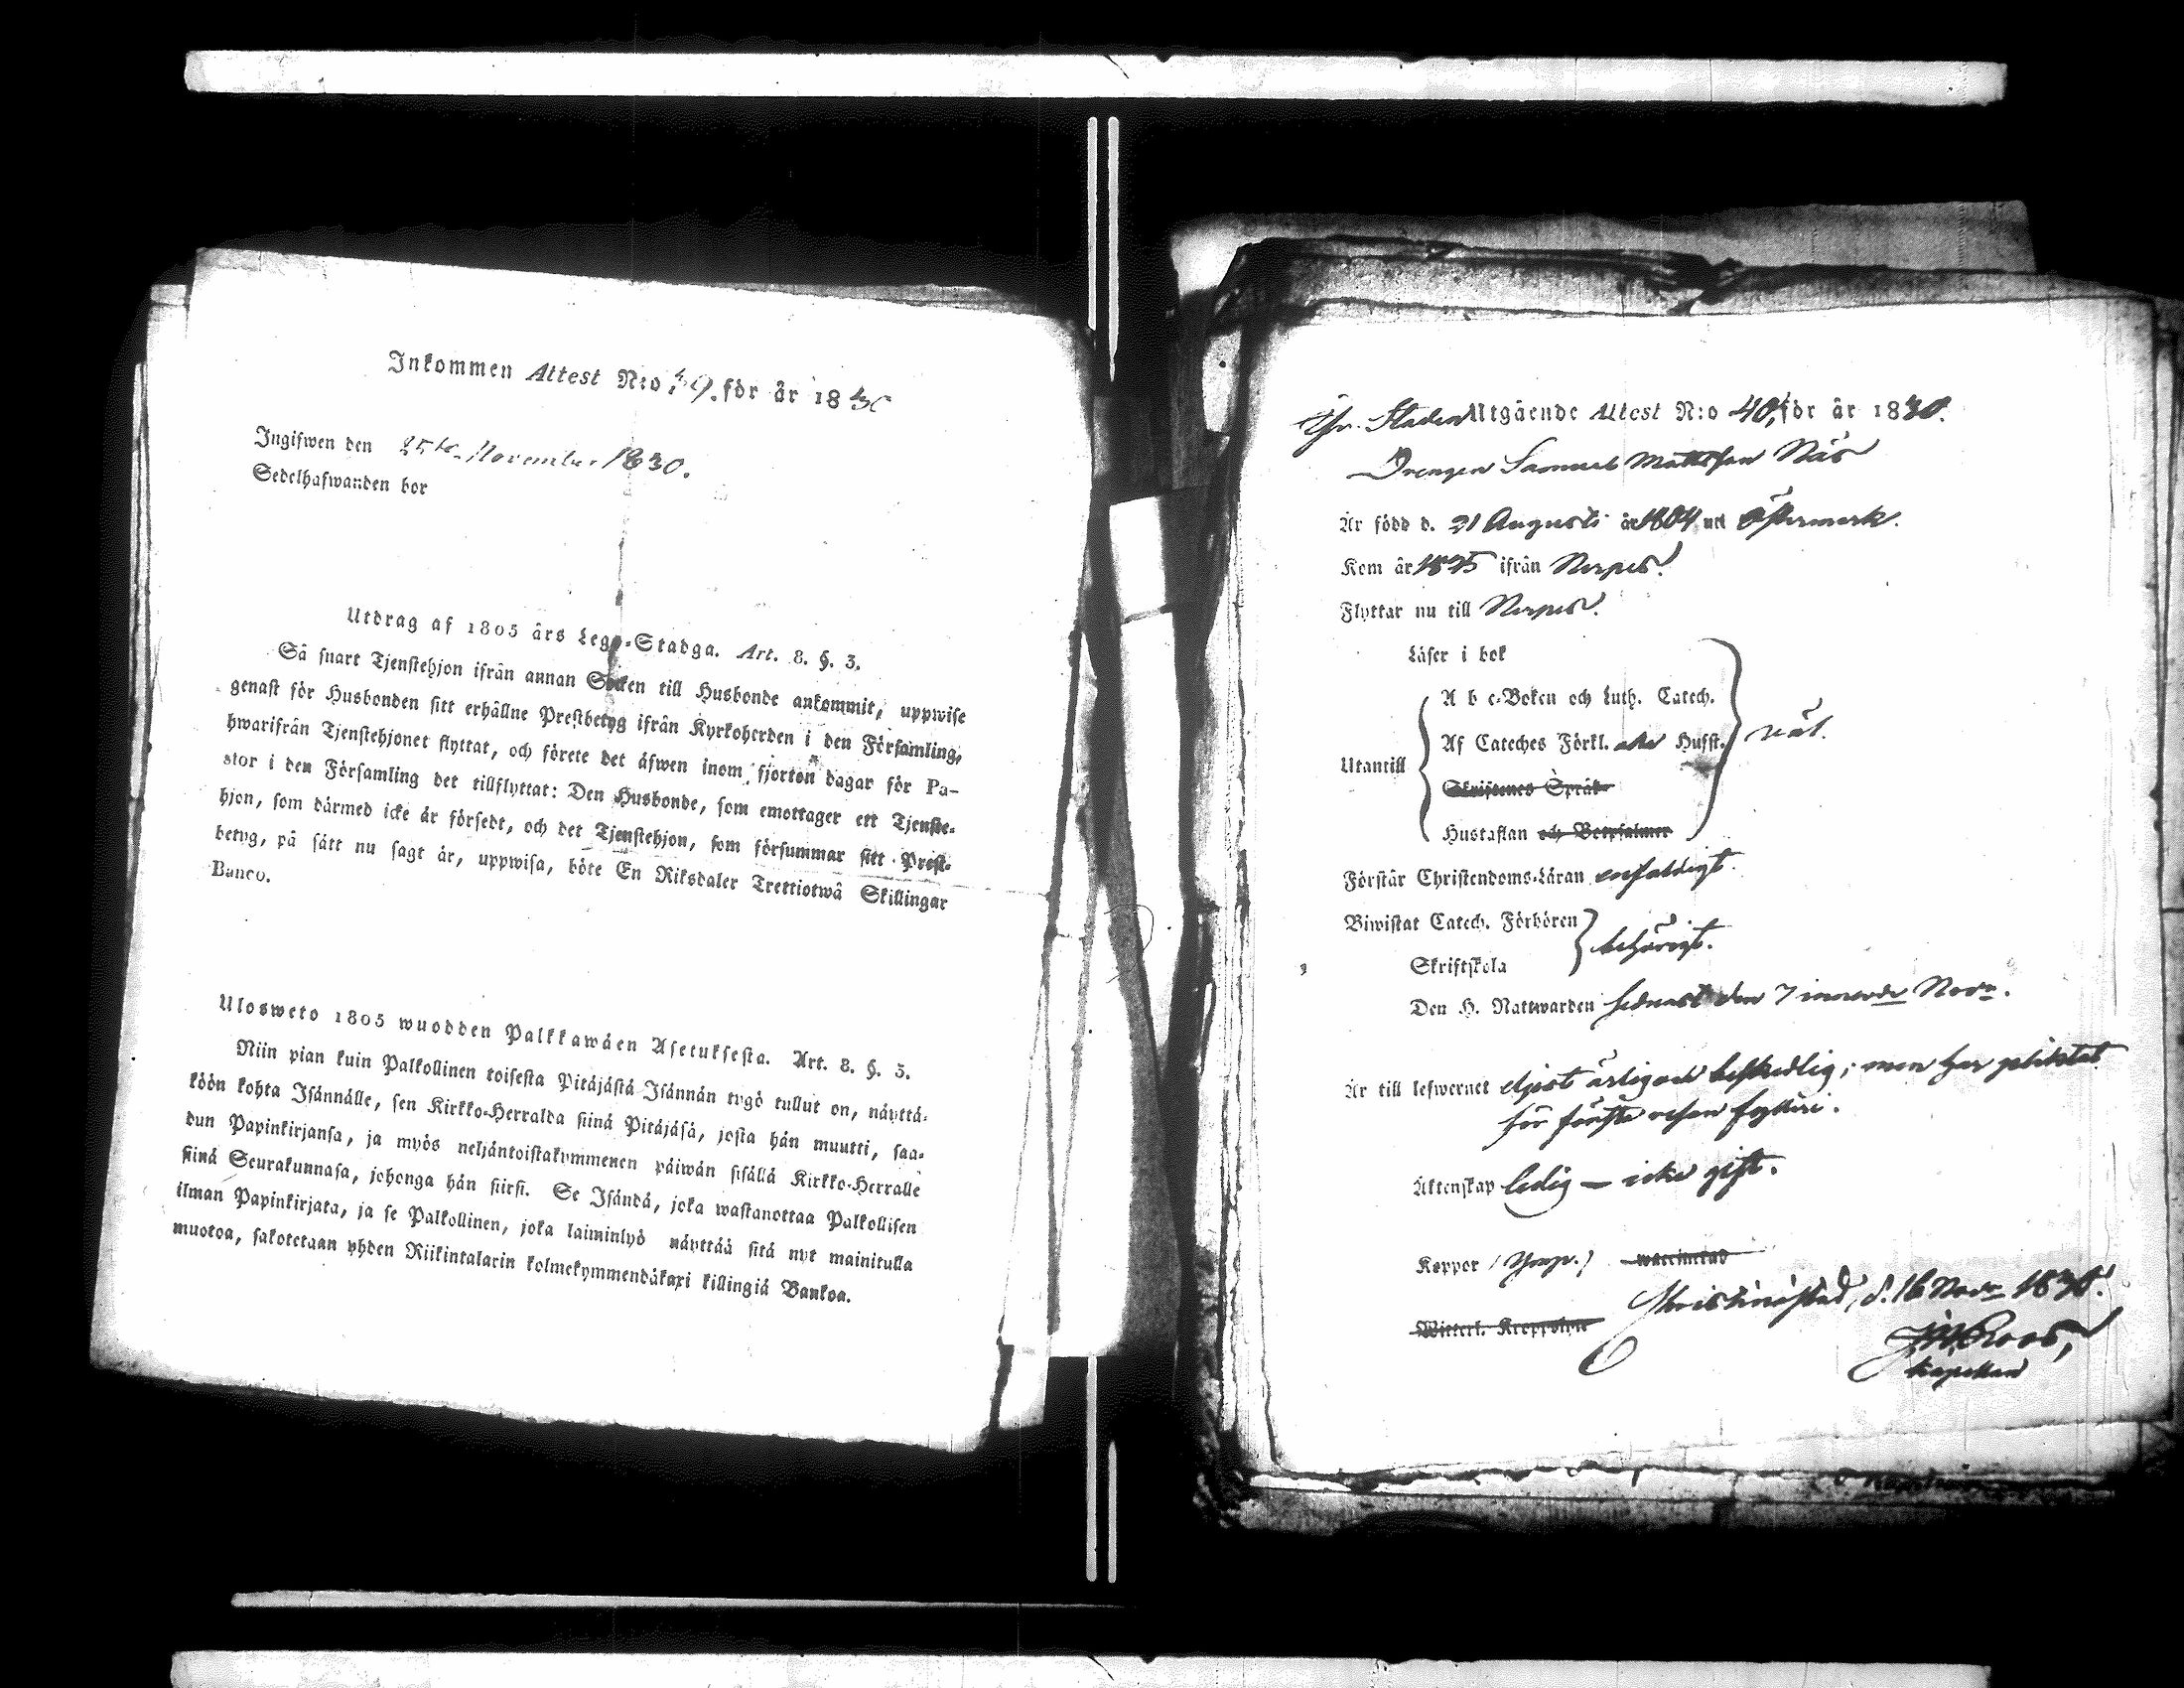 Inkommen Attest N:o 59. för år 1830
Ingifwen den 25te November 1830.
Sedelhafwanden bor
Utdrag af 1805 års Lego-Stadga. Art. 8. §. 3.
Så snart Tjenstehjon ifrån annan Socken till Husbonde ankommit, uppwise
genast för Husbonden sitt erhållne Prestbetyg ifrån Kyrkoherden i den Församling,
hwarifrån Tjenstehjonet flyttat, och förete det äfwen inom fjorton dagar för Pa-
stor i den Församling det tillflyttat: Den Husbonde, som emottager ett Tjenste-
hjon, som därmed icke är försedt, och det Tjenstehjon, som försummar sitt Prest-
betyg, på sätt nu sagt är, uppwisa, böte En Riksdaler Trettiotwå Skillingar
Banco.
Ulosweto 1805 wuodden Palkkawäen Asetuksesta. Art. 8. §. 3.
Niin pian kuin Palkollinen toisesta Pitäjästä Isännän tygö tullut on, näyttä-
köön kohta Isännälle, sen Kirkko-Herralda siinä Pitäjäsä, josta hän muutti, saa-
dun Papinkirjansa, ja myös neljäntoistakymmenen päiwän sisällä Kirkko-Herralle
siinä Seurakunnasa, johonga hän siirsi. Se Isändä, joka wastanottaa Palkollisen
ilman Papinkirjata, ja se Palkollinen, joka laiminlyö näyttää sitä nyt mainitulla
muotoa, sakotetaan yhden Riikintalarin kolmekymmendäkaxi killingiä Bankoa.
Chr. Staden Utgående Attest N:o 40, för år 1830.
Drengen Samuel Mattsson Näs
Är född d. 21 Augusti år 1804 uti Östermark.
Kom år 1825 ifrån Nerpes.
Flyttar nu till Nerpes.
Läser i bok
A b c-Boken och Luth. Catech.
Af Cateches Förkl. Husst. nöt.
Utantill
Skriftenes Språk
Hustaflan och Botpsalmer
Förstår Christendoms-Läran enfaldigt.
Biwistat Catech. Förhören
behörigt.
Skriftskola
Den H. Nattwarden sednast den 7 innevde Novr.
Är till lefwernet eljest ärlig och beskedlig; men har pliktat
för första resan fylleri.
Äktenskap ledig — icke gift.
Koppor (Ymp.)
Christinæstad, d. 16 Novr 1830.
Roos,
Kapellan